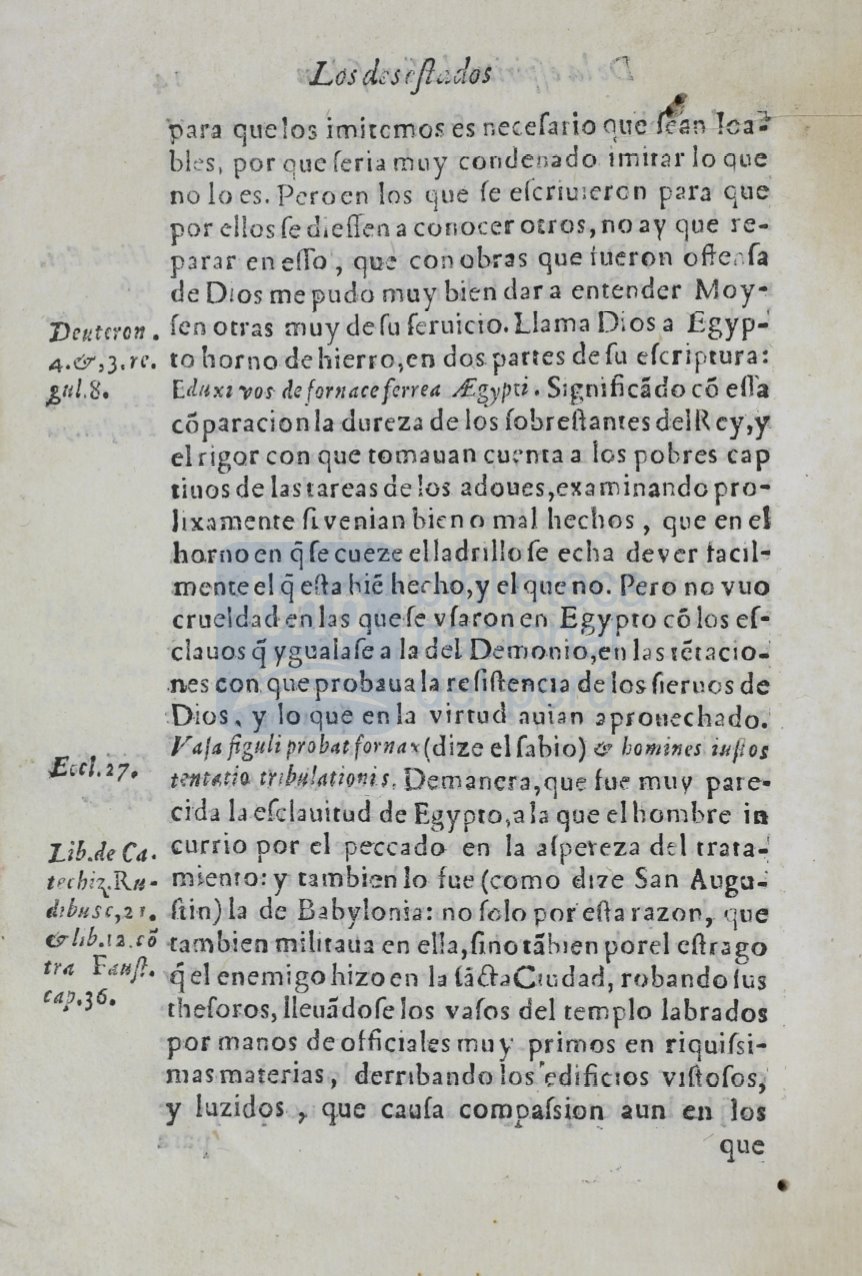 Los dos estados
para que los imitemos es necesario que sean loa-
bles, por que seria muy condenado imitar lo que
no lo es. Pero en los que se escriuieron para que
por ellos se diessen a conocer otros, no ay que re-
parar en esso, que con obras que fueron offensa
de Dios me pudo muy bien dar a entender Moy-
sen otras muy de su seruicio. Llama Dios a Egyp-
to horno de hierro, en dos partes de su escriptura:
Eduxi vos de fornace ferrea Ægypti. Significãdo cõ essa
cõparacion la dureza de los sobrestantes del Rey, y
el rigor con que tomauan cuenta a los pobres cap
tiuos de las tareas de los adoues, examinando pro-
lixamente si venian bien o mal hechos, que en el
horno en q̃ se cueze el ladrillo se echa de ver facil-
mente el q̃ esta biẽ hecho, y el que no. Pero no vuo
crueldad en las que se vsaron en Egypto cõ los es-
clauos q̃ ygualase a la del Demonio, en las tẽtacio-
nes con que probaua la resistencia de los sieruos de
Dios, y lo que en la virtud auian aprouechado.
Vasa figuli probat fornax (dize el sabio) & homines iustos
tentatio tribulationis. De manera, que fue muy pare-
cida la esclauitud de Egypto, a la que el hombre in
currio por el peccado en la aspereza del trata-
miento: y tambien lo fue (como dize San Augu-
stin) la de Babylonia: no solo por esta razon, que
tambien militaua en ella, sino tãbien por el estrago
q̃ el enemigo hizo en la sãcta Ciudad, robando sus
thesoros, lleuãdose los vasos del templo labrados
por manos de officiales muy primos en riquissi-
mas materias, derribando los edificios vistosos,
y luzidos, que causa compassion aun en los
que
Deuteron.
4. &, 3. re.
gul. 8.
Eccl. 27.
Lib. de Ca.
techiz. Ru-
dibus c, 21.
& lib. 12. cõ
tra Faust.
cap. 36.